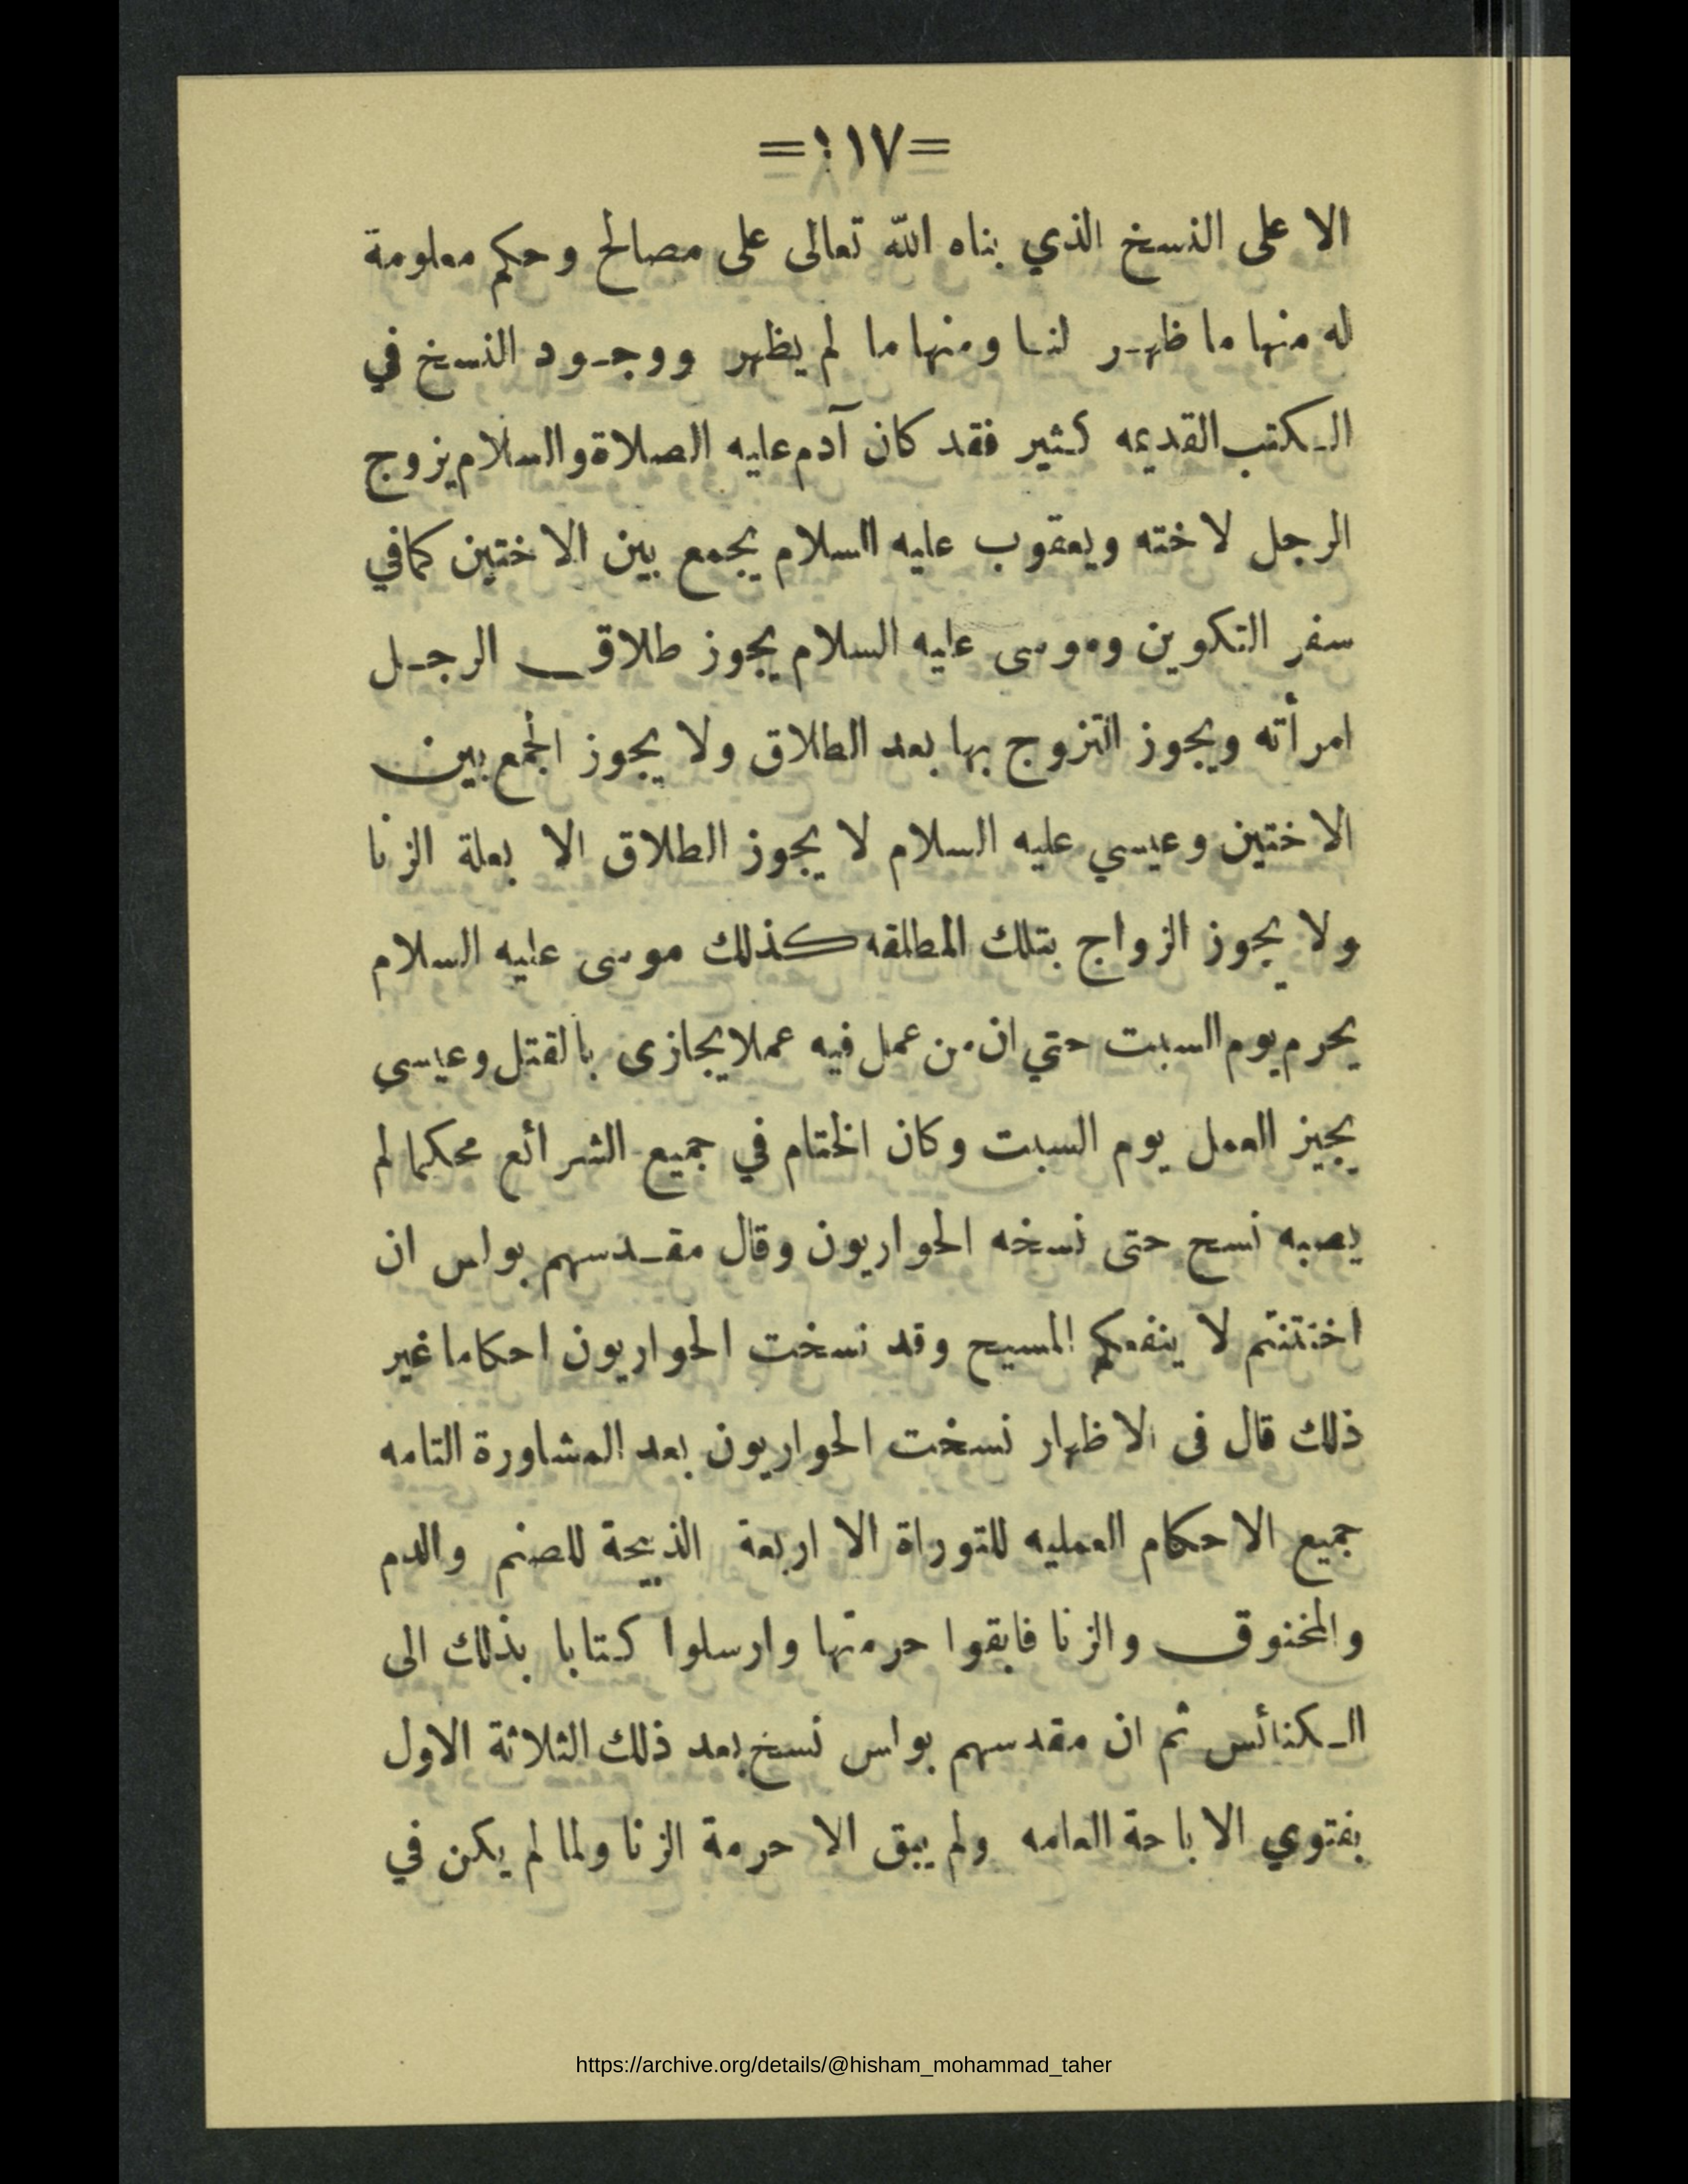 =١١٧=
الا على النسخ الذي بناه الله تعالى على مصالح وحكم معلومة
له منها ما ظهر لنا ومنها ما لم يظهر ووجود النسخ في
الكتب القديمه كثير فقد كان آدم عليه الصلاة والسلام يزوج
الرجل لاخته ويعقوب عليه السلام يجمع بين الاختين كما في
سفر التكوين وموسى عليه السلام يجوز طلاق الرجل
امرأته ويجوز التزوج بها بعد الطلاق ولا يجوز الجمع بين
الاختين وعيسي عليه السلام لا يجوز الطلاق الا بعلة الزنا
ولا يجوز الزواج بتلك المطلقه كذلك موسى عليه السلام
يحرم يوم السبت حتي ان من عمل فيه عملا يجازى بالقتل وعيسي
يجيز العمل يوم السبت وكان الختام في جميع الشرائع محكما لم
يصبه نسح حتى نسخه الحواريون وقال مقدسهم بولس ان
اختتنتم لا ينفعكم المسيح وقد نسخت الحواريون احكاما غير
ذلك قال فى الاظهار نسخت الحواريون بعد المشاورة التامه
جميع الاحكام العمليه للتوراة الا اربعة الذبيحة للصنم والدم
والمخنوق والزنا فابقوا حرمتها وارسلوا كتابا بذلك الى
الكنائس ثم ان مقدسهم بولس نسخ بعد ذلك الثلاثة الاول
بفتوي الاباحة العامه ولم يبق الا حرمة الزنا ولما لم يكن في
https://archive.org/details/@hisham_mohammad_taher